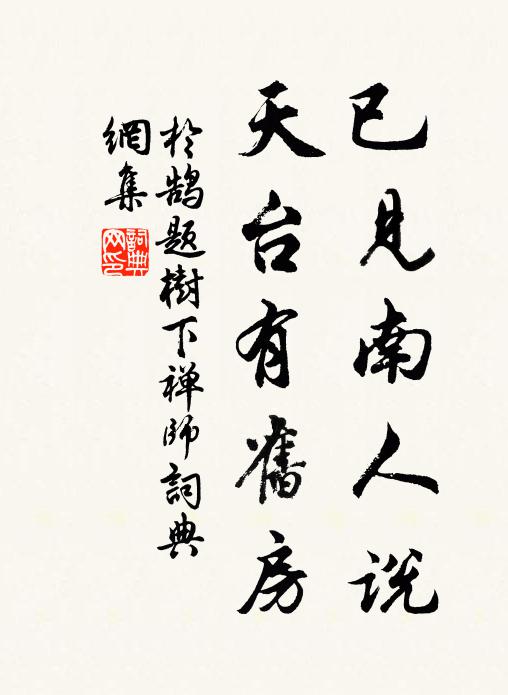 已見南人說
天台有舊房
於鵠題樹下禅師詞典
網集
詞典
网印